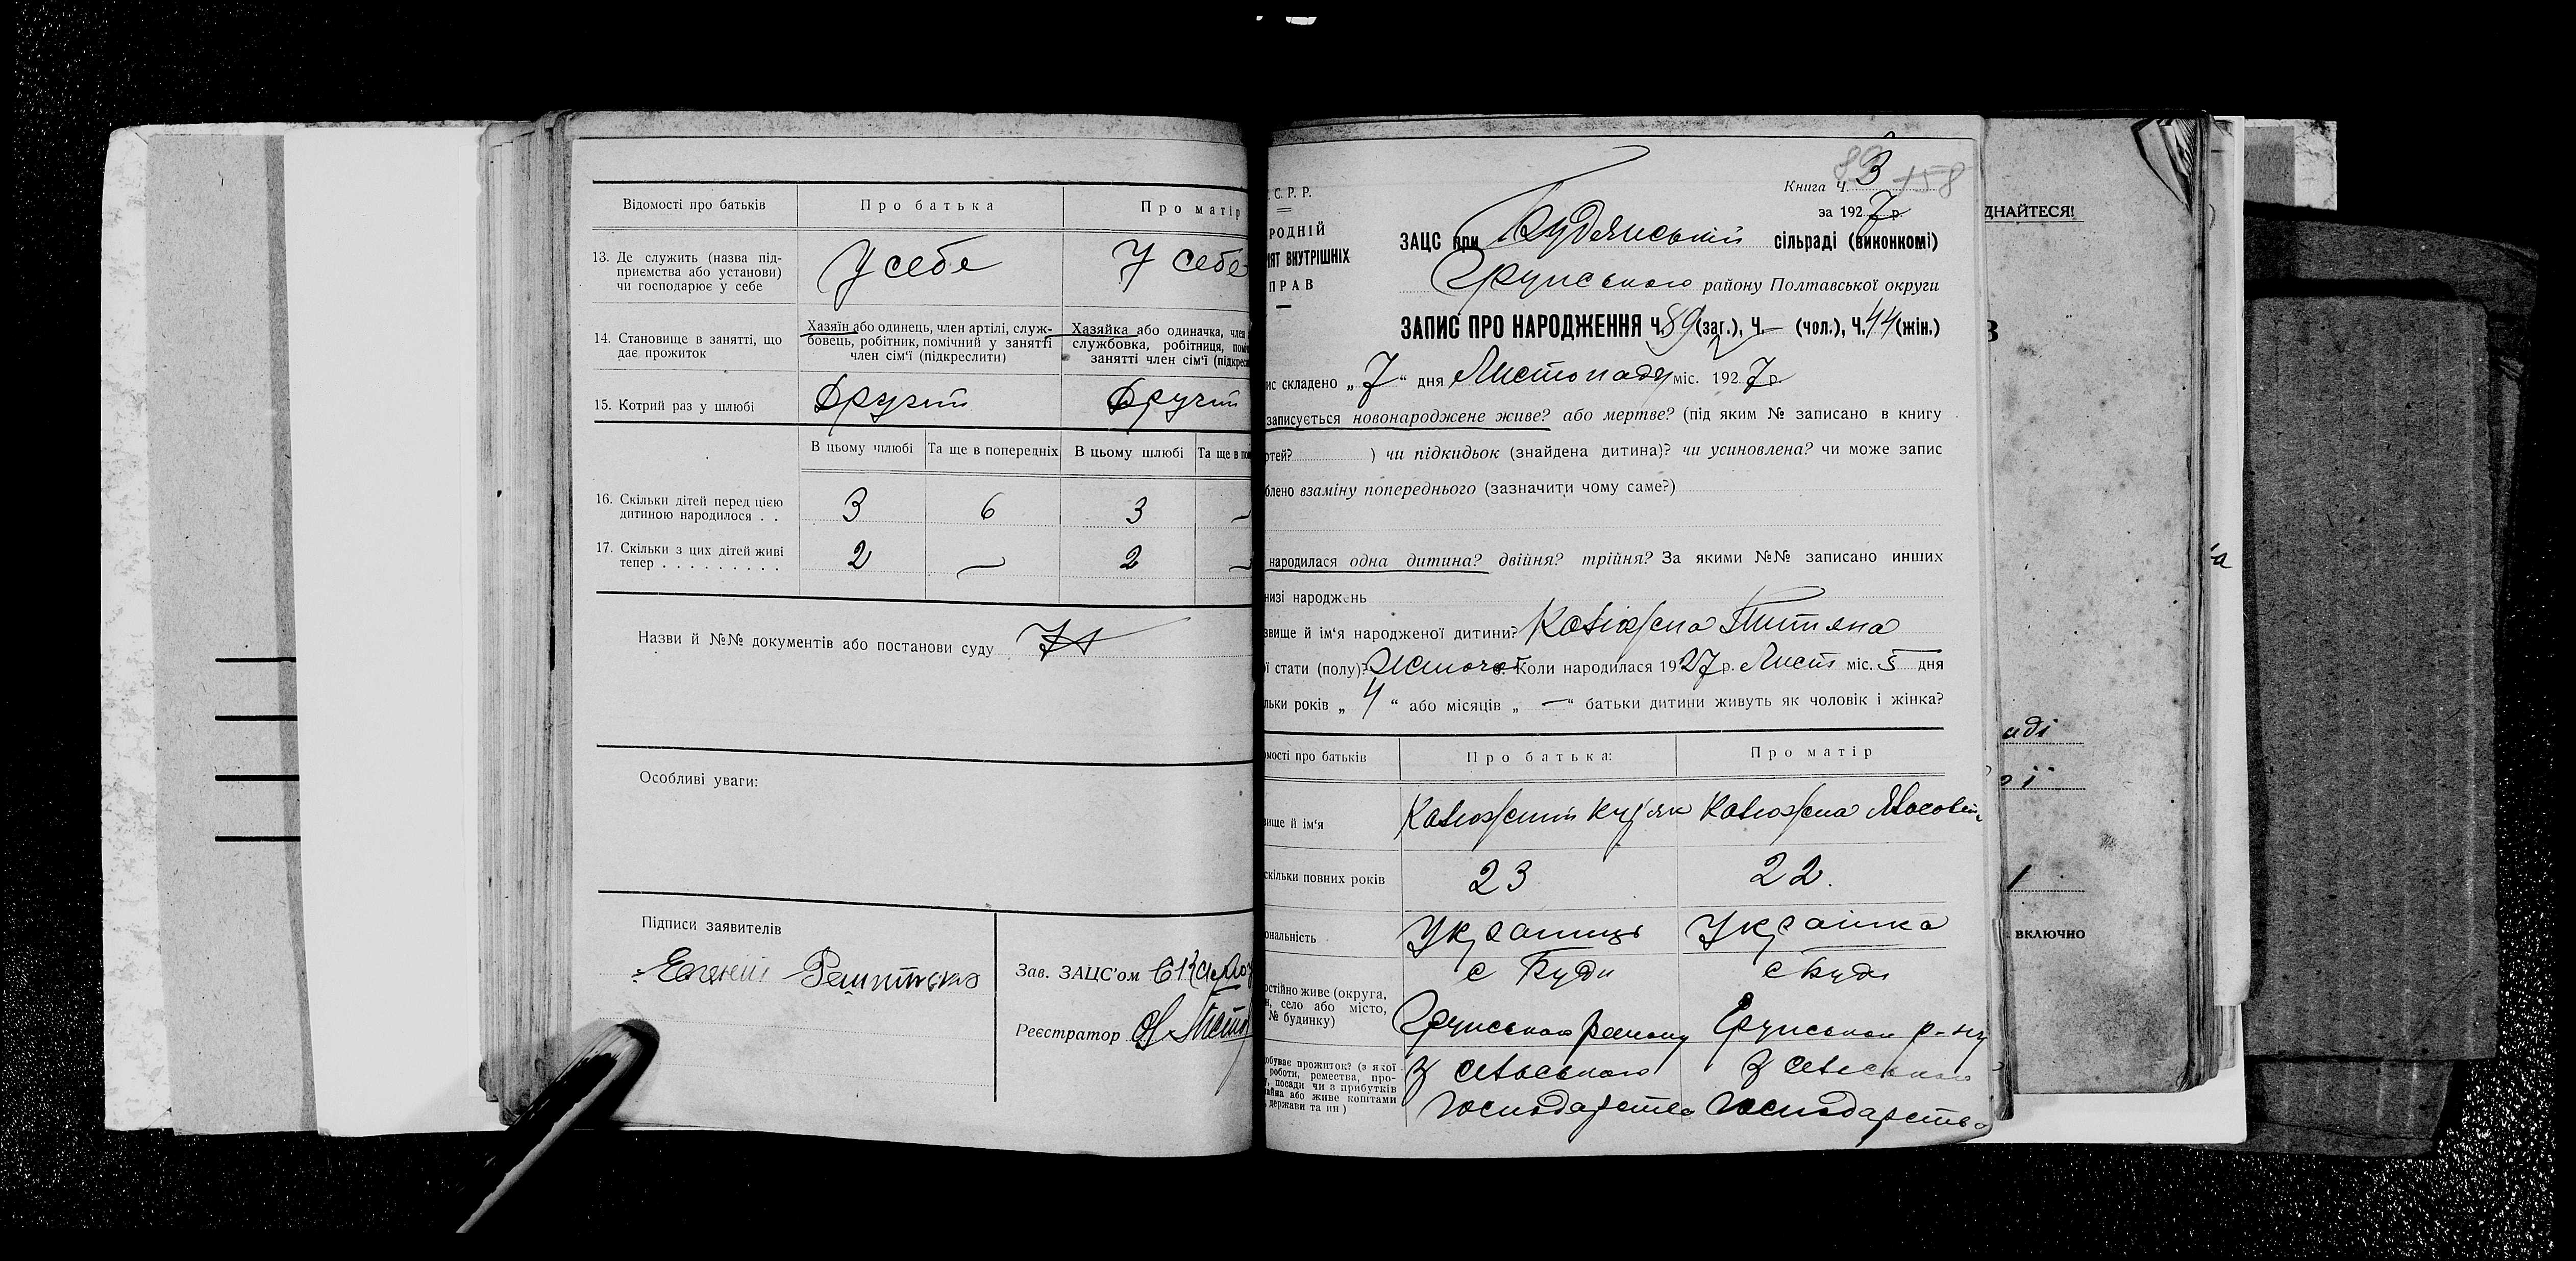 Відомості про батьків
Про батька
Про матір
13. Де служить (назва під-
приємства або установи)
чи господарює у себе
У себе
У себе
14. Становище в занятті, що
дає прожиток
Хазяїн або одинець, член артілі, служ-
бовець, робітник, помічний у занятті
член сім'ї (підкреслити)
Хазяйка або одиначка, член
службовка, робітниця, поміч
занятті член сім'ї (підкрес
15. Котрий раз у шлюбі
Другий
Другий
В цьому шлюбі
Та ще в попередніх
В цьому шлюбі
Та ще в по
16. Скільки дітей перед цією
дитиною народилося . .
3
6
3
–
17. Скільки з цих дітей живі
тепер . . . . . . . . .
2
–
2
–
Назви й №№ документів або постанови суду
Особливі уваги:
Підписи заявителів
Зав. ЗАЦС'ом
Реєстратор
С. Р. Р.
РОДНІЙ
ІЯТ ВНУТРІШНІХ
ПРАВ
89 158
Книга Ч. 3
за 1927 р.
ЗАЦС при Будянській сільраді (виконкомі)
Грунського району Полтавської округи
ЗАПИС ПРО НАРОДЖЕННЯ Ч. 89 (заг.), Ч. – (чол.), Ч. 44 (жін.)
ис складено „7“ дня Листопаду міс. 1927 р.
записується новонароджене живе? або мертве? (під яким № записано в книгу
ртей? ) чи підкидьок (знайдена дитина)? чи усиновлена? чи може запис
блено взаміну попереднього (зазначити чому саме?)
народилася одна дитина? двійня? трійня? За якими №№ записано инших
низі народжень
звище й ім'я народженої дитини? Калюжна Титяна
ої стати (полу)? Жіночої. Коли народилася 1927 р. Лист міс. 5 дня
льки років „4“ або місяців „–“ батьки дитини живуть як чоловік і жінка?
мості про батьків
Про батька:
Про матір
вище й ім'я
Калюжний
Калюжна
скільки повних років
23
22.
ональність
Українець
Українка
остійно живе (округа,
н, село або місто,
№ будинку)
с Буди
Грунського району
с Буди
Грунського р-ну
обуває прожиток? (з якої
роботи, ремества, про-
, посади чи з прибутків
майна або живе коштами
держави та ин)
З сільського
господарства
З сільського
господарства
ДНАЙТЕСЯ!
аді
ої
включно